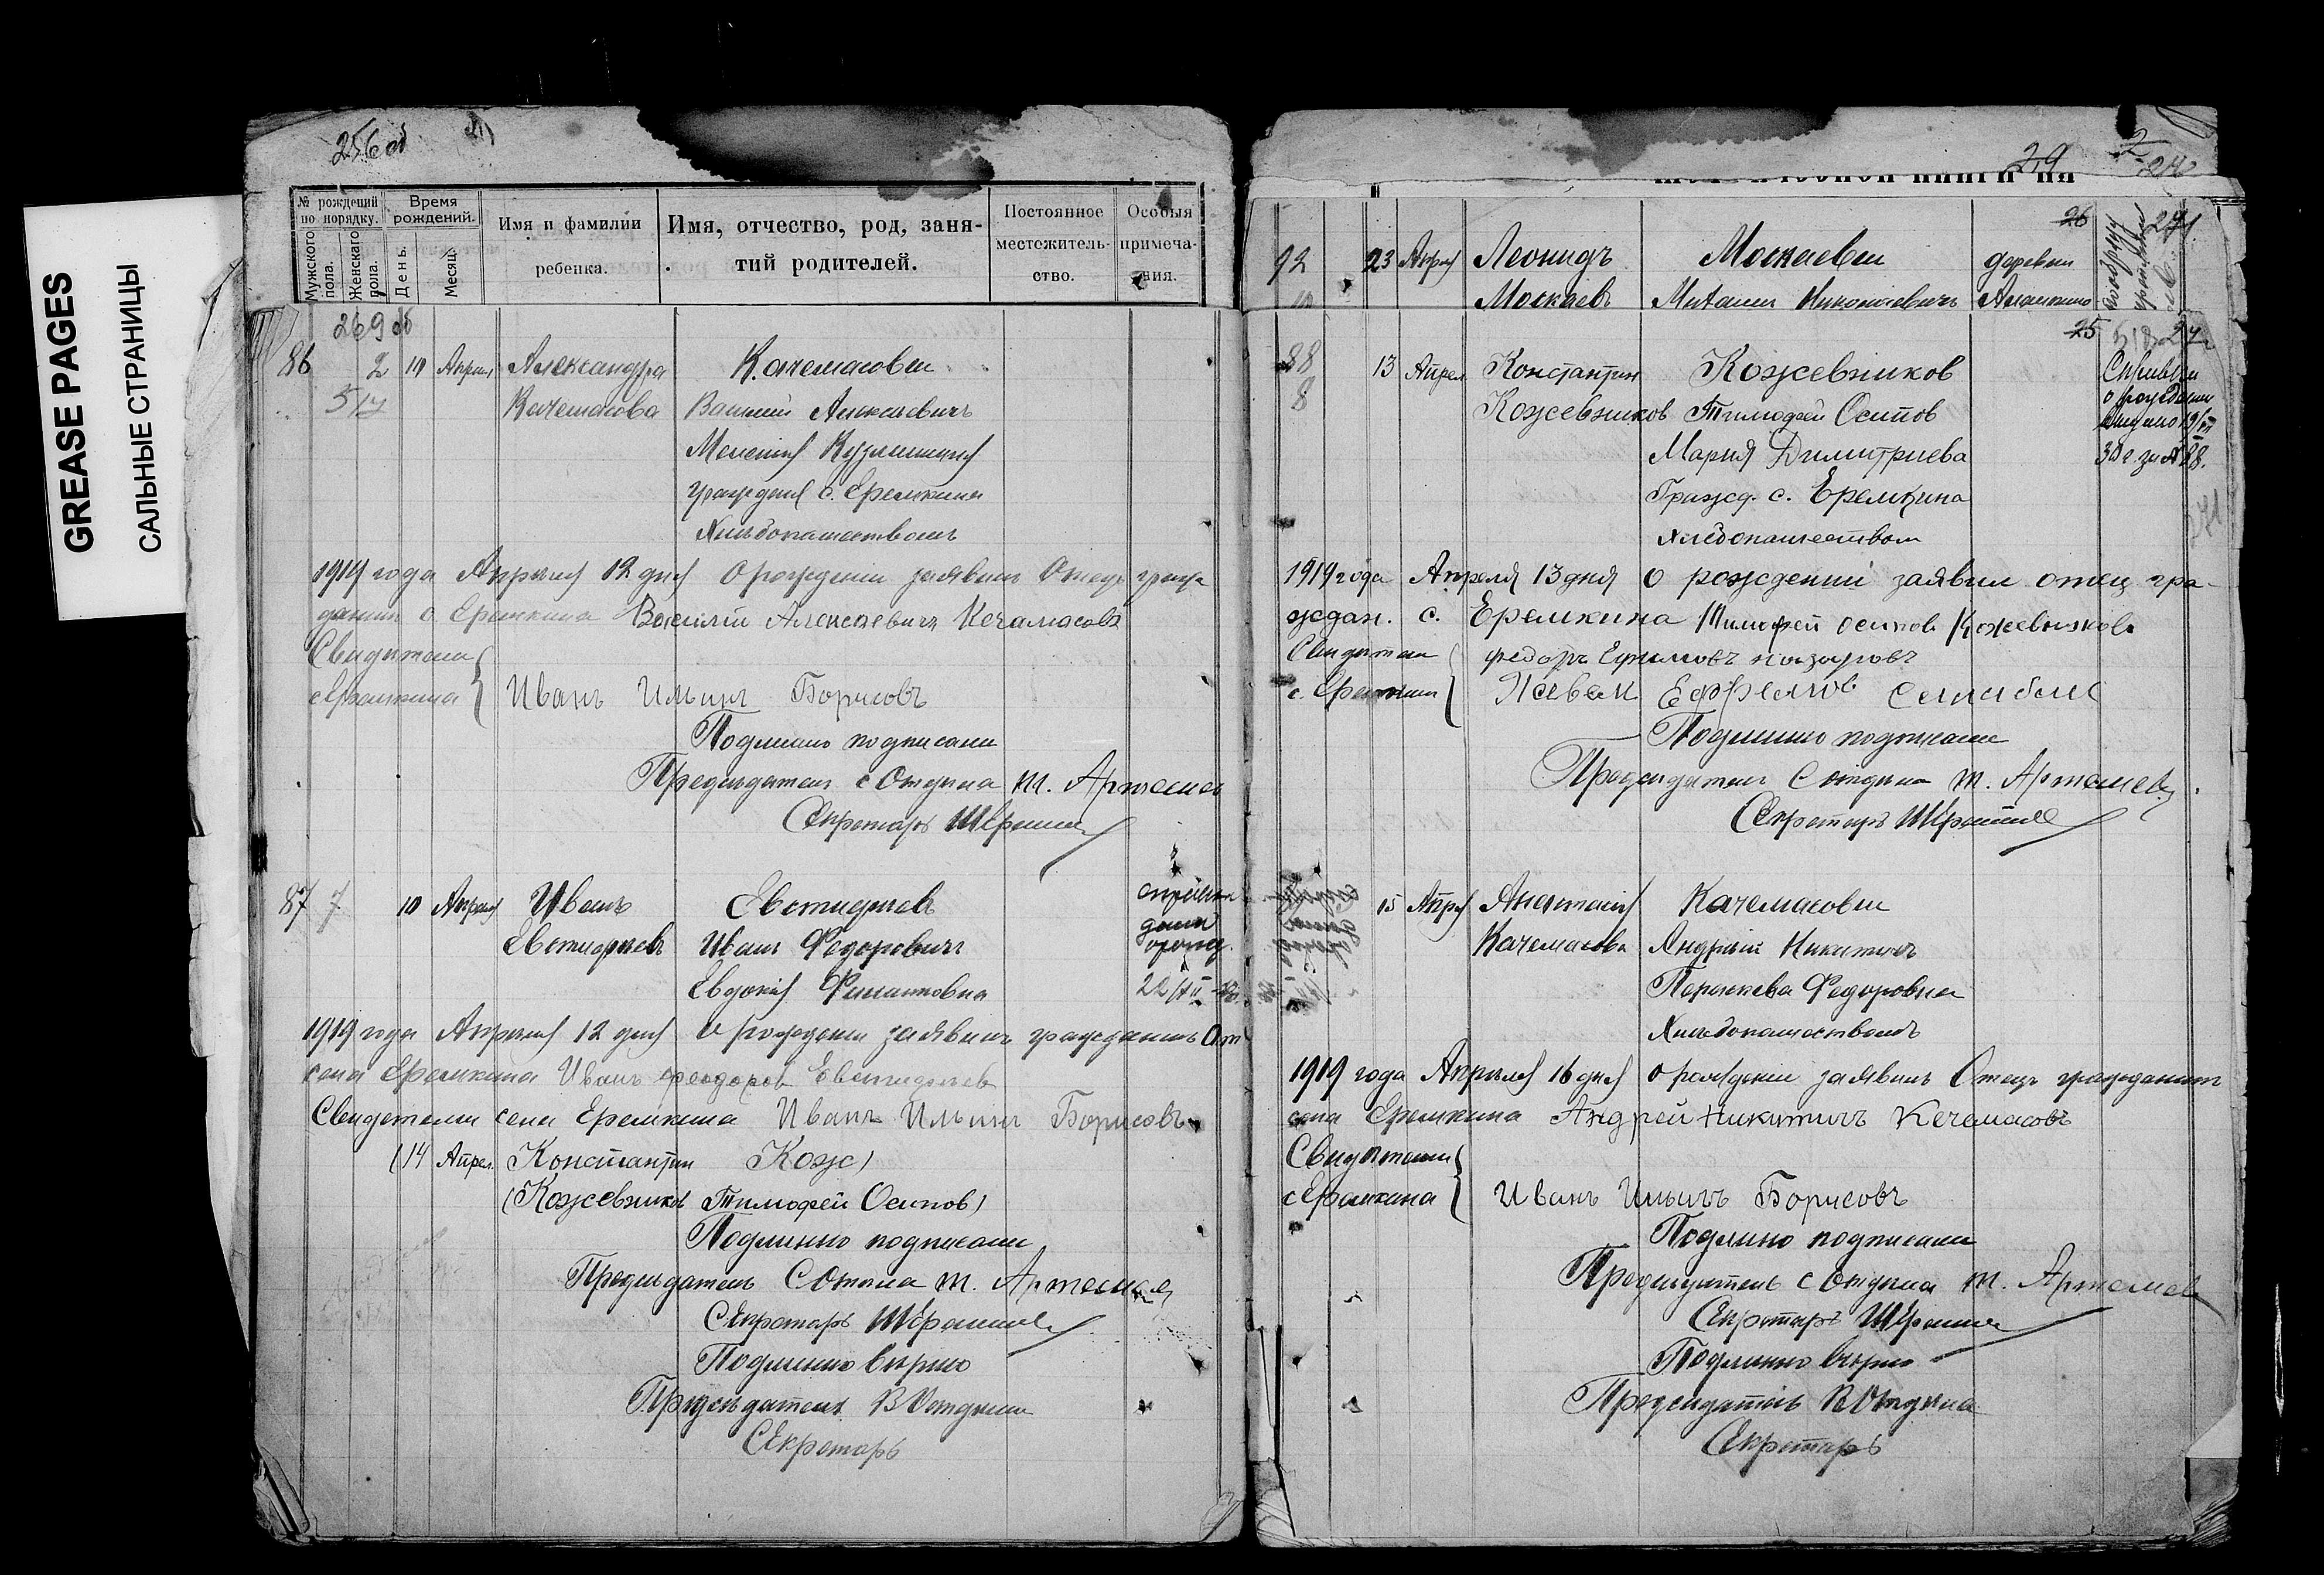 GREASE PAGES
САЛЬНЫЕ СТРАНИЦЫ
256 об
№ рождений по порядку.
Мужского пола.
Женскаго пола.
Время рождений.
День.
Месяц.
Имя и фамилии ребенка.
Имя, отчество, род, занятий родителей.
Постоянное местожительство.
Особыя примечания.
269 об
86 2 10 Апрел Александра Качемасовы
Качемасова Василий Алексеевичъ
Кузминична
граждан с. Еремкина
Хлѣбопашествомъ
1919 года Апрѣля 12 дня О рождении заявилъ Отецъ граж
данин с. Еремкина Василий Алексеевичъ Кечамасовъ
Свидетели
с Еремкина Иванъ Ильичъ Борисовъ
Подлинно подписали
Председатель с Отдела т. Артемьев
Секретарь
87 7 10 Апрѣля Иванъ Евстифеевъ
Евстифеевъ Иванъ Федоровичъ
Евдокия Филипповна
1919 года Апрѣля 12 дня О рождении заявилъ гражданинъ От
села Еремкина Иванъ феодоров Евстифеев
Свидетели села Еремкина Иванъ Ильичъ Борисовъ
(14 Апрел. Константин Кож)
(Кожевников Тимофей Осипов)
Подлинно подписали
Председатель С Отдела т. Артемьев
Секретарь
Подлинно верно
Председатель В Отдела
Секретарь
29
26
271
92 23 Апрѣл Леонидъ Москаевы
деревни
Москаевъ Николаевичъ
25
88 13 Апрел Константин Кожевников
8 Кожевников Тимофей Осипов
о рождении
Мария Димитриева
Гражд. с. Еремкина
хлебопашеством
1919 года Апреля 13 дня О рождении заявил отец гра-
ждан. с. Еремкина Тимофей осипов Кожевников
Свидетели федоръ Ефимовъ назаровъ
с. Еремкина
Подлинно подписали
Председатель С отдела т. Артемьев
Секретарь
15 Апрѣл Анастасия Качемасовы
Качемасова Андрей Никитичъ
Федоровна
Хлѣбопашествомъ
1919 года Апрѣля 16 дня О рождении заявилъ Отецъ гражданин
села Еремкина Андрей Никитичъ Кечемасовъ
Свидетели
с Еремкина Иванъ Ильичъ Борисовъ
Подлинно подписали
Председатель с Отдела т. Артемьев
Секретарь
Подлинно верно
Председатель В Отдела
Секретарь